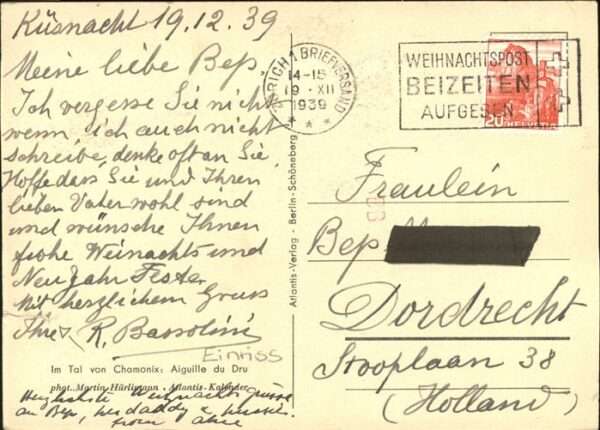 Küsnacht 19.12.39
Meine liebe Bep,
Ich vergesse Sie nicht
wenn ich auch nicht
schreibe, denke oft an Sie.
Hoffe dass Sie und Ihren
lieben Vater wohl sind
und wünsche Ihnen
frohe Weinachts und
Neu Jahr Feste
Mit herzlichem Gruss
Ihre R. Bassolini
Einriss
Im Tal von Chamonix: Aiguille du Dru
phot. Martin Hürlimann · Atlantis-Kalender
Herzlichste Weihnachtsgrüsse
an Bep, her daddy &
from
Atlantis-Verlag · Berlin-Schöneberg
ZÜRICH 1 BRIEFVERSAND
14-15
19. XII
1939
WEIHNACHTSPOST
BEIZEITEN
AUFGEBEN
20 HELVETIA
Fräulein
Bep
Dordrecht
Stooplaan 38
(Holland)